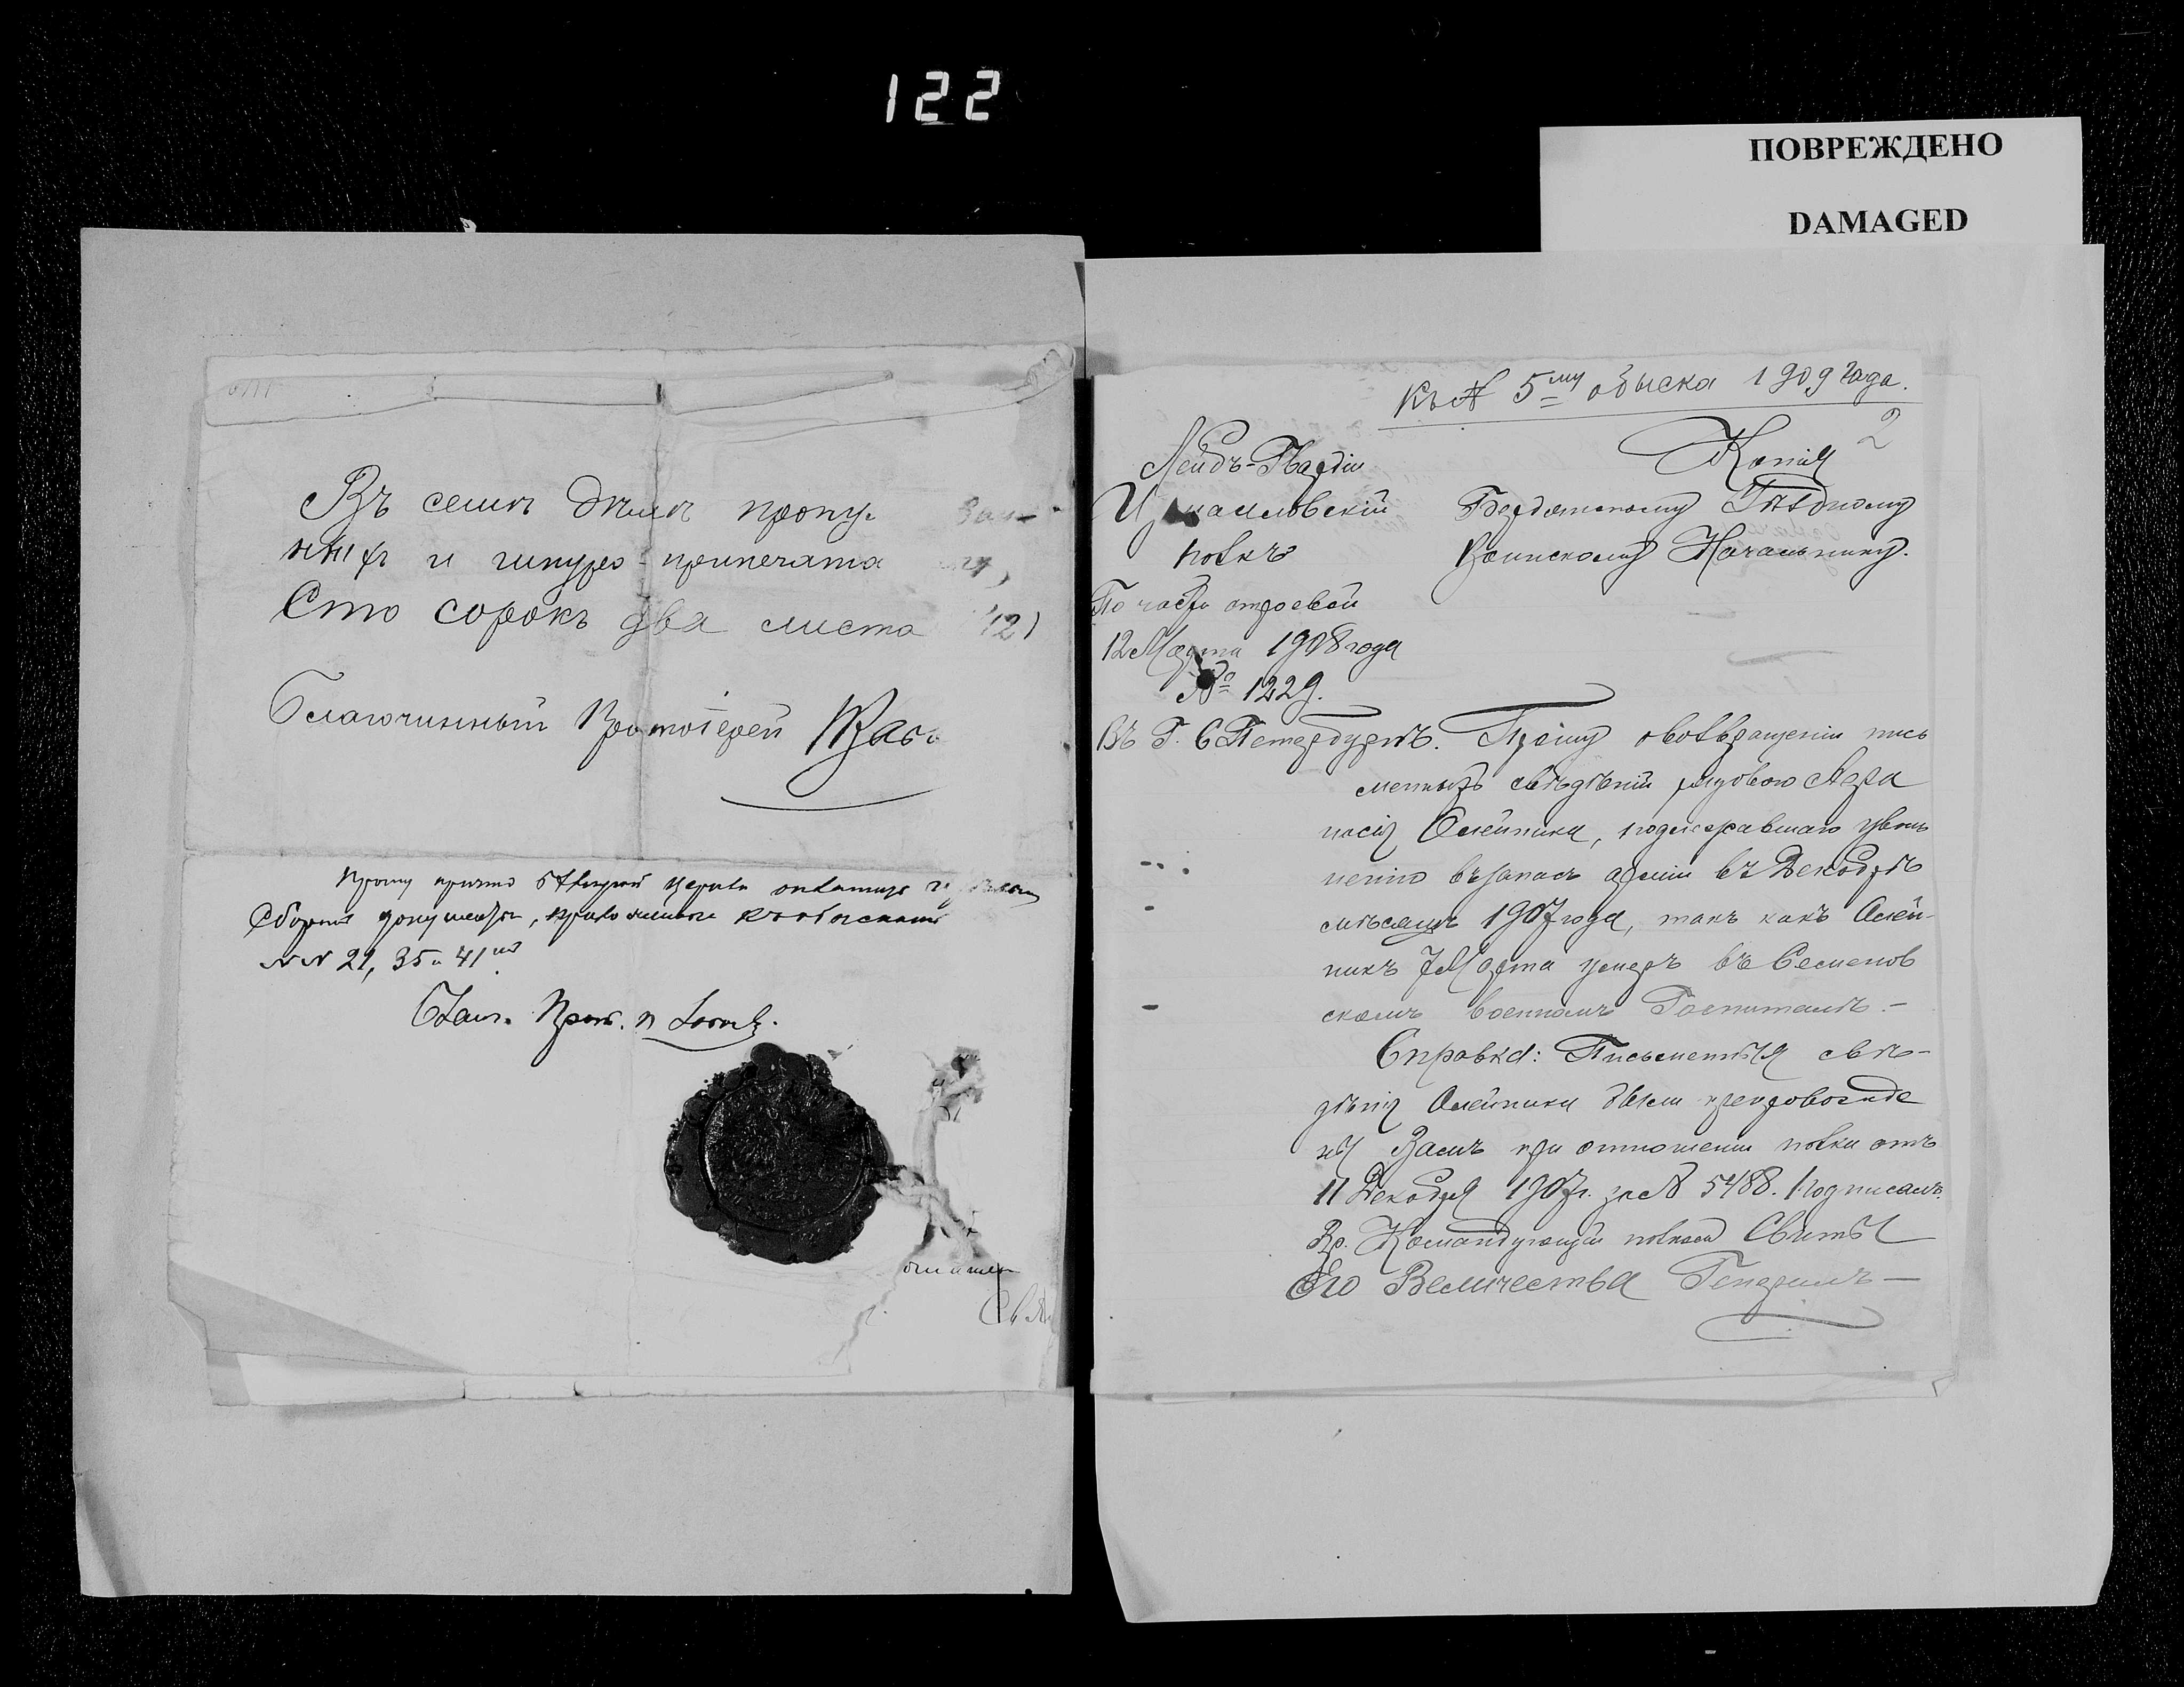 122
ПОВРЕЖДЕНО
DAMAGED
Въ семъ дѣлѣ прону-
и шнуро- припечата
Сто сорокъ два листа
Благочинный Протоіерей
Прошу причтъ церкви
документы, приложенные къ обыскамъ
№№ 21, 35 и 41
Благ. Прот. П.
Къ № 5му обыска 1909 года.
2
Копія
Лейбъ-Гвардіи
Измайловскій
полкъ
По части строевой
12 Марта 1908 года
№ 1229.
Въ Г. С Петербургѣ.
Бердянскому Уѣздному
Воинскому Начальнику.
Прошу о возвращеніи пись
менныхъ свѣдѣній рядового Аѳа
насія Олейника, подлежавшаго уволь
ненію въ запасъ арміи въ Декабрѣ
мѣсяцѣ 1907 года, такъ какъ Олей-
никъ 7 Марта умеръ въ Семенов
скомъ военномъ Госпиталѣ.-
Справка: Письменныя свѣ-
дѣнія Олейника были препровожде
ны Вамъ при отношеніи полка отъ
11 Декабря 1907г. за № 5488. Подписалъ:
Вр. Командующій полкомъ Свиты
Его Величества Генералъ-